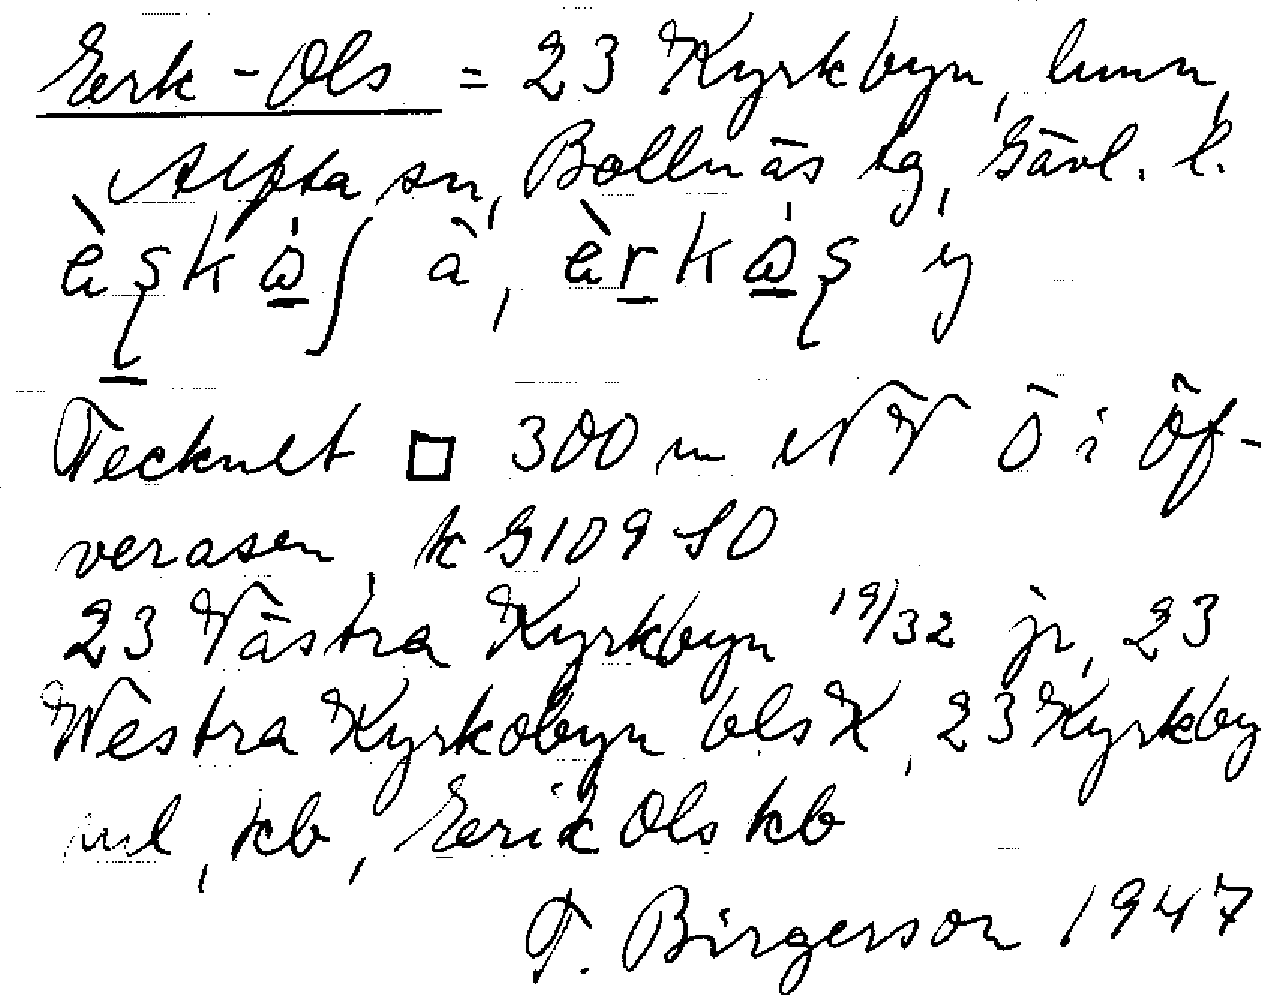 Eerk-Ols = 23 Kyrkbyn, hmn,
Alfta sn, Bollnäs tg, Gävl. l.
à,
Tecknet □ 300 m NV Ö i Öf-
verasen, k G109 SO
23 Västra Kyrkbyn 19/32 jr, 23
Westra Kyrkobyn blsK, 23 Kyrkby
ml, kb, Eerik Ols kb
T. Birgerson 1947